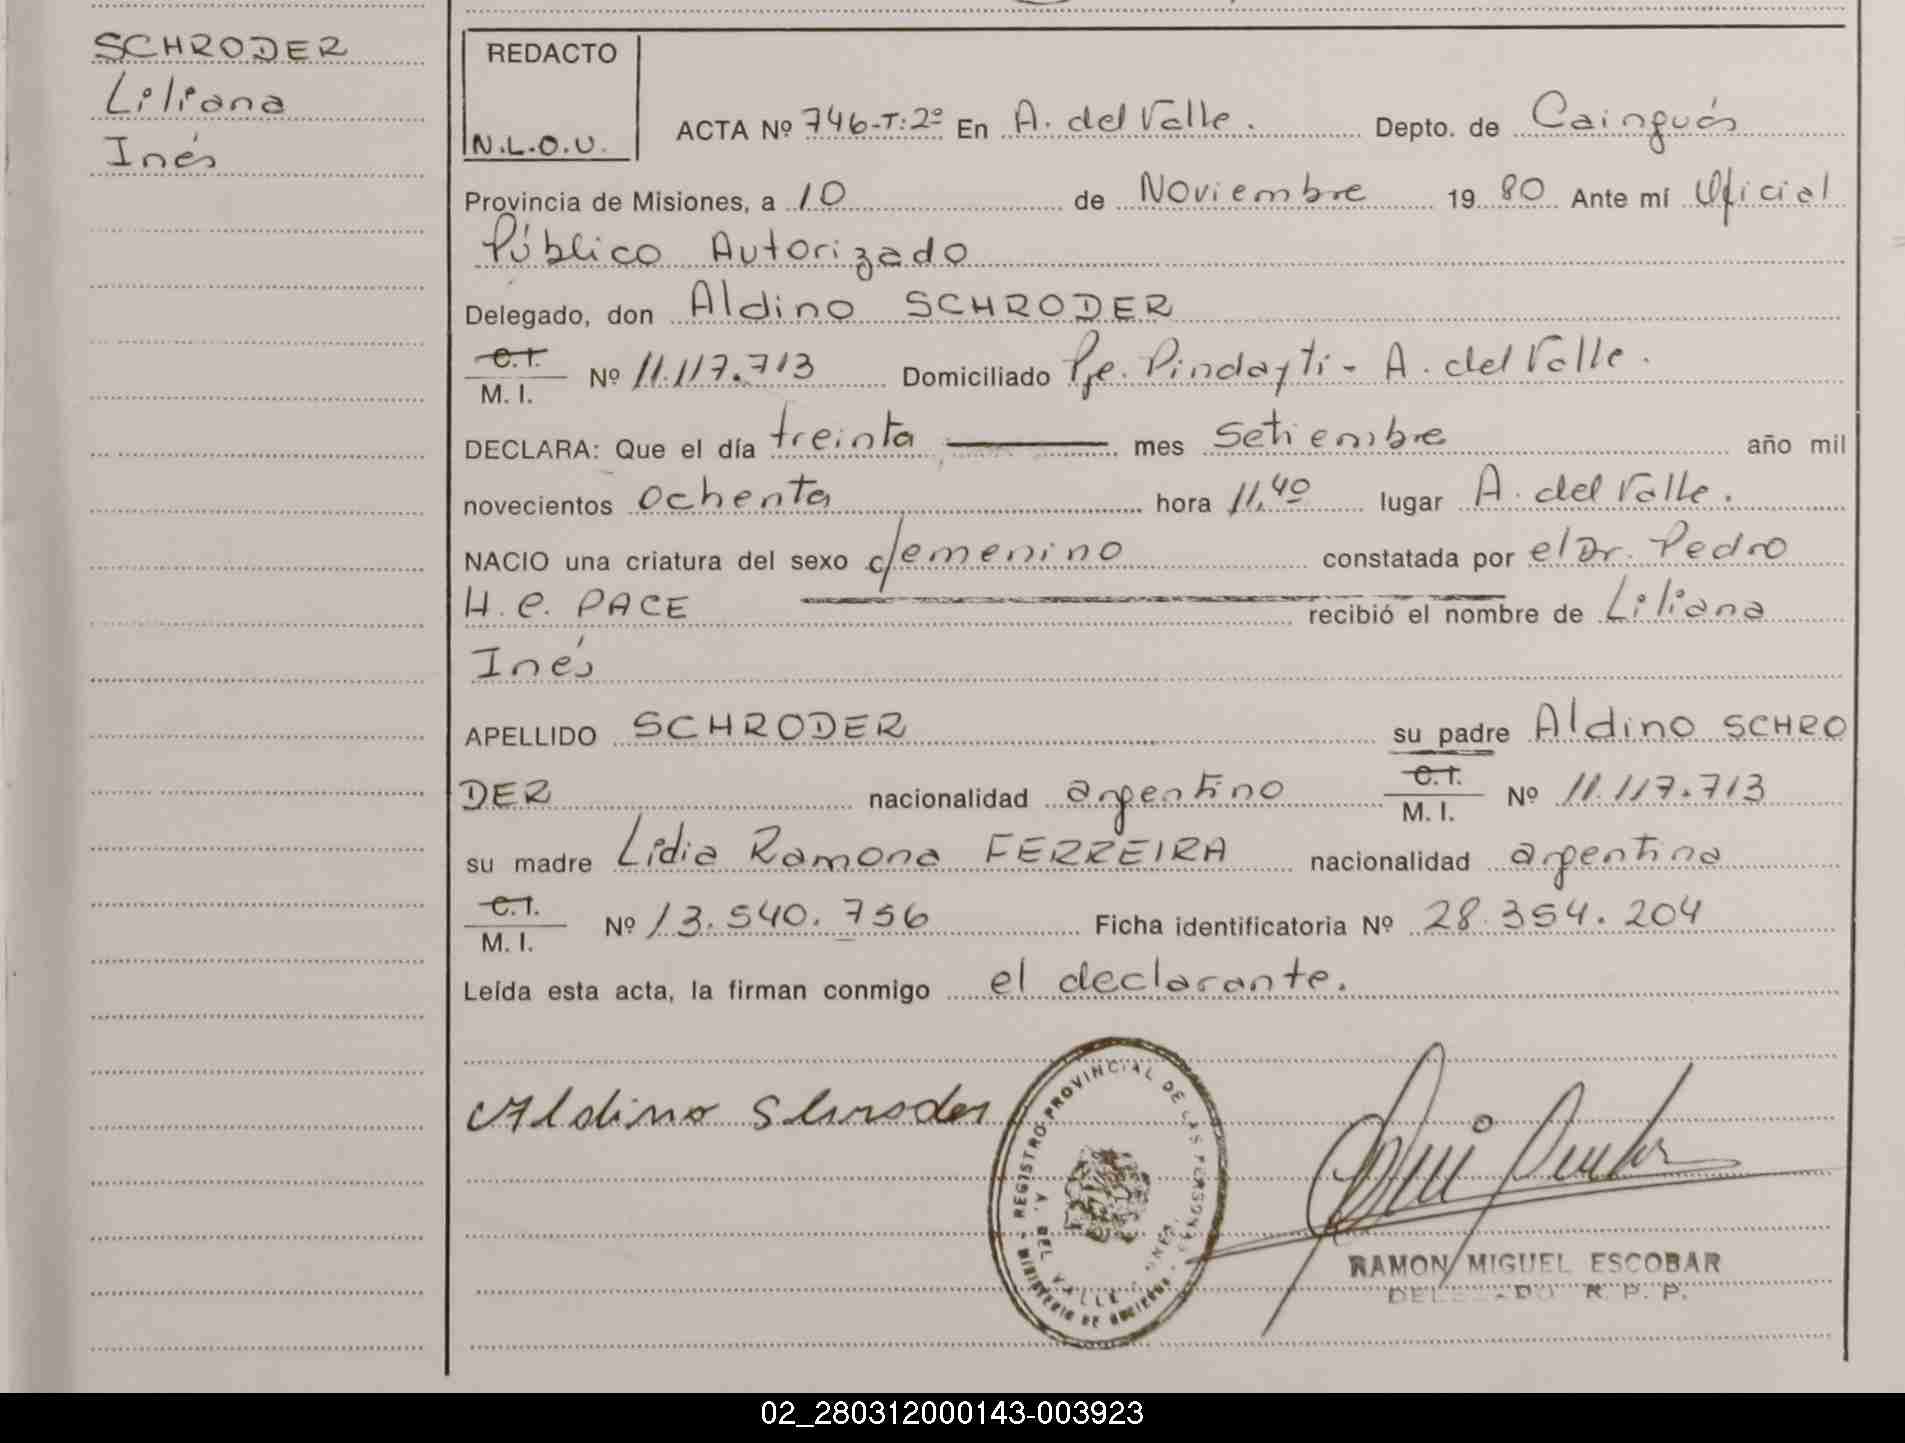 SCHRODER
Liliana
Inés
REDACTO
N.L.O.U.
ACTA Nº 746-T:2º En A. del Valle. Depto. de Cainguás
Provincia de Misiones, a 10 de Noviembre 1980 Ante mí Oficial
Público Autorizado
Delegado, don Aldino SCHRODER
C.I.
M. I. Nº 11.117.713 Domiciliado Pje. Pindayti - A. del Valle.
DECLARA: Que el día treinta mes Setiembre año mil
novecientos Ochenta hora 11,40 lugar A. del Valle.
NACIO una criatura del sexo femenino constatada por el Dr. Pedro
H. C. PACE recibió el nombre de Liliana
Inés
APELLIDO SCHRODER su padre Aldino SCHRO
DER nacionalidad argentino C.I.
M. I. Nº 11.117.713
su madre Lidia Ramona FERREIRA nacionalidad argentina
C.I.
M. I. Nº 13.540.756 Ficha identificatoria Nº 28.354.204
Leída esta acta, la firman conmigo el declarante.
Aldino Schroder
REGISTRO PROVINCIAL DE LAS PERSONAS
A. DEL VALLE
MINISTERIO DE GOBIERNO
RAMON MIGUEL ESCOBAR
DELEGADO R. P. P.
02_280312000143-003923